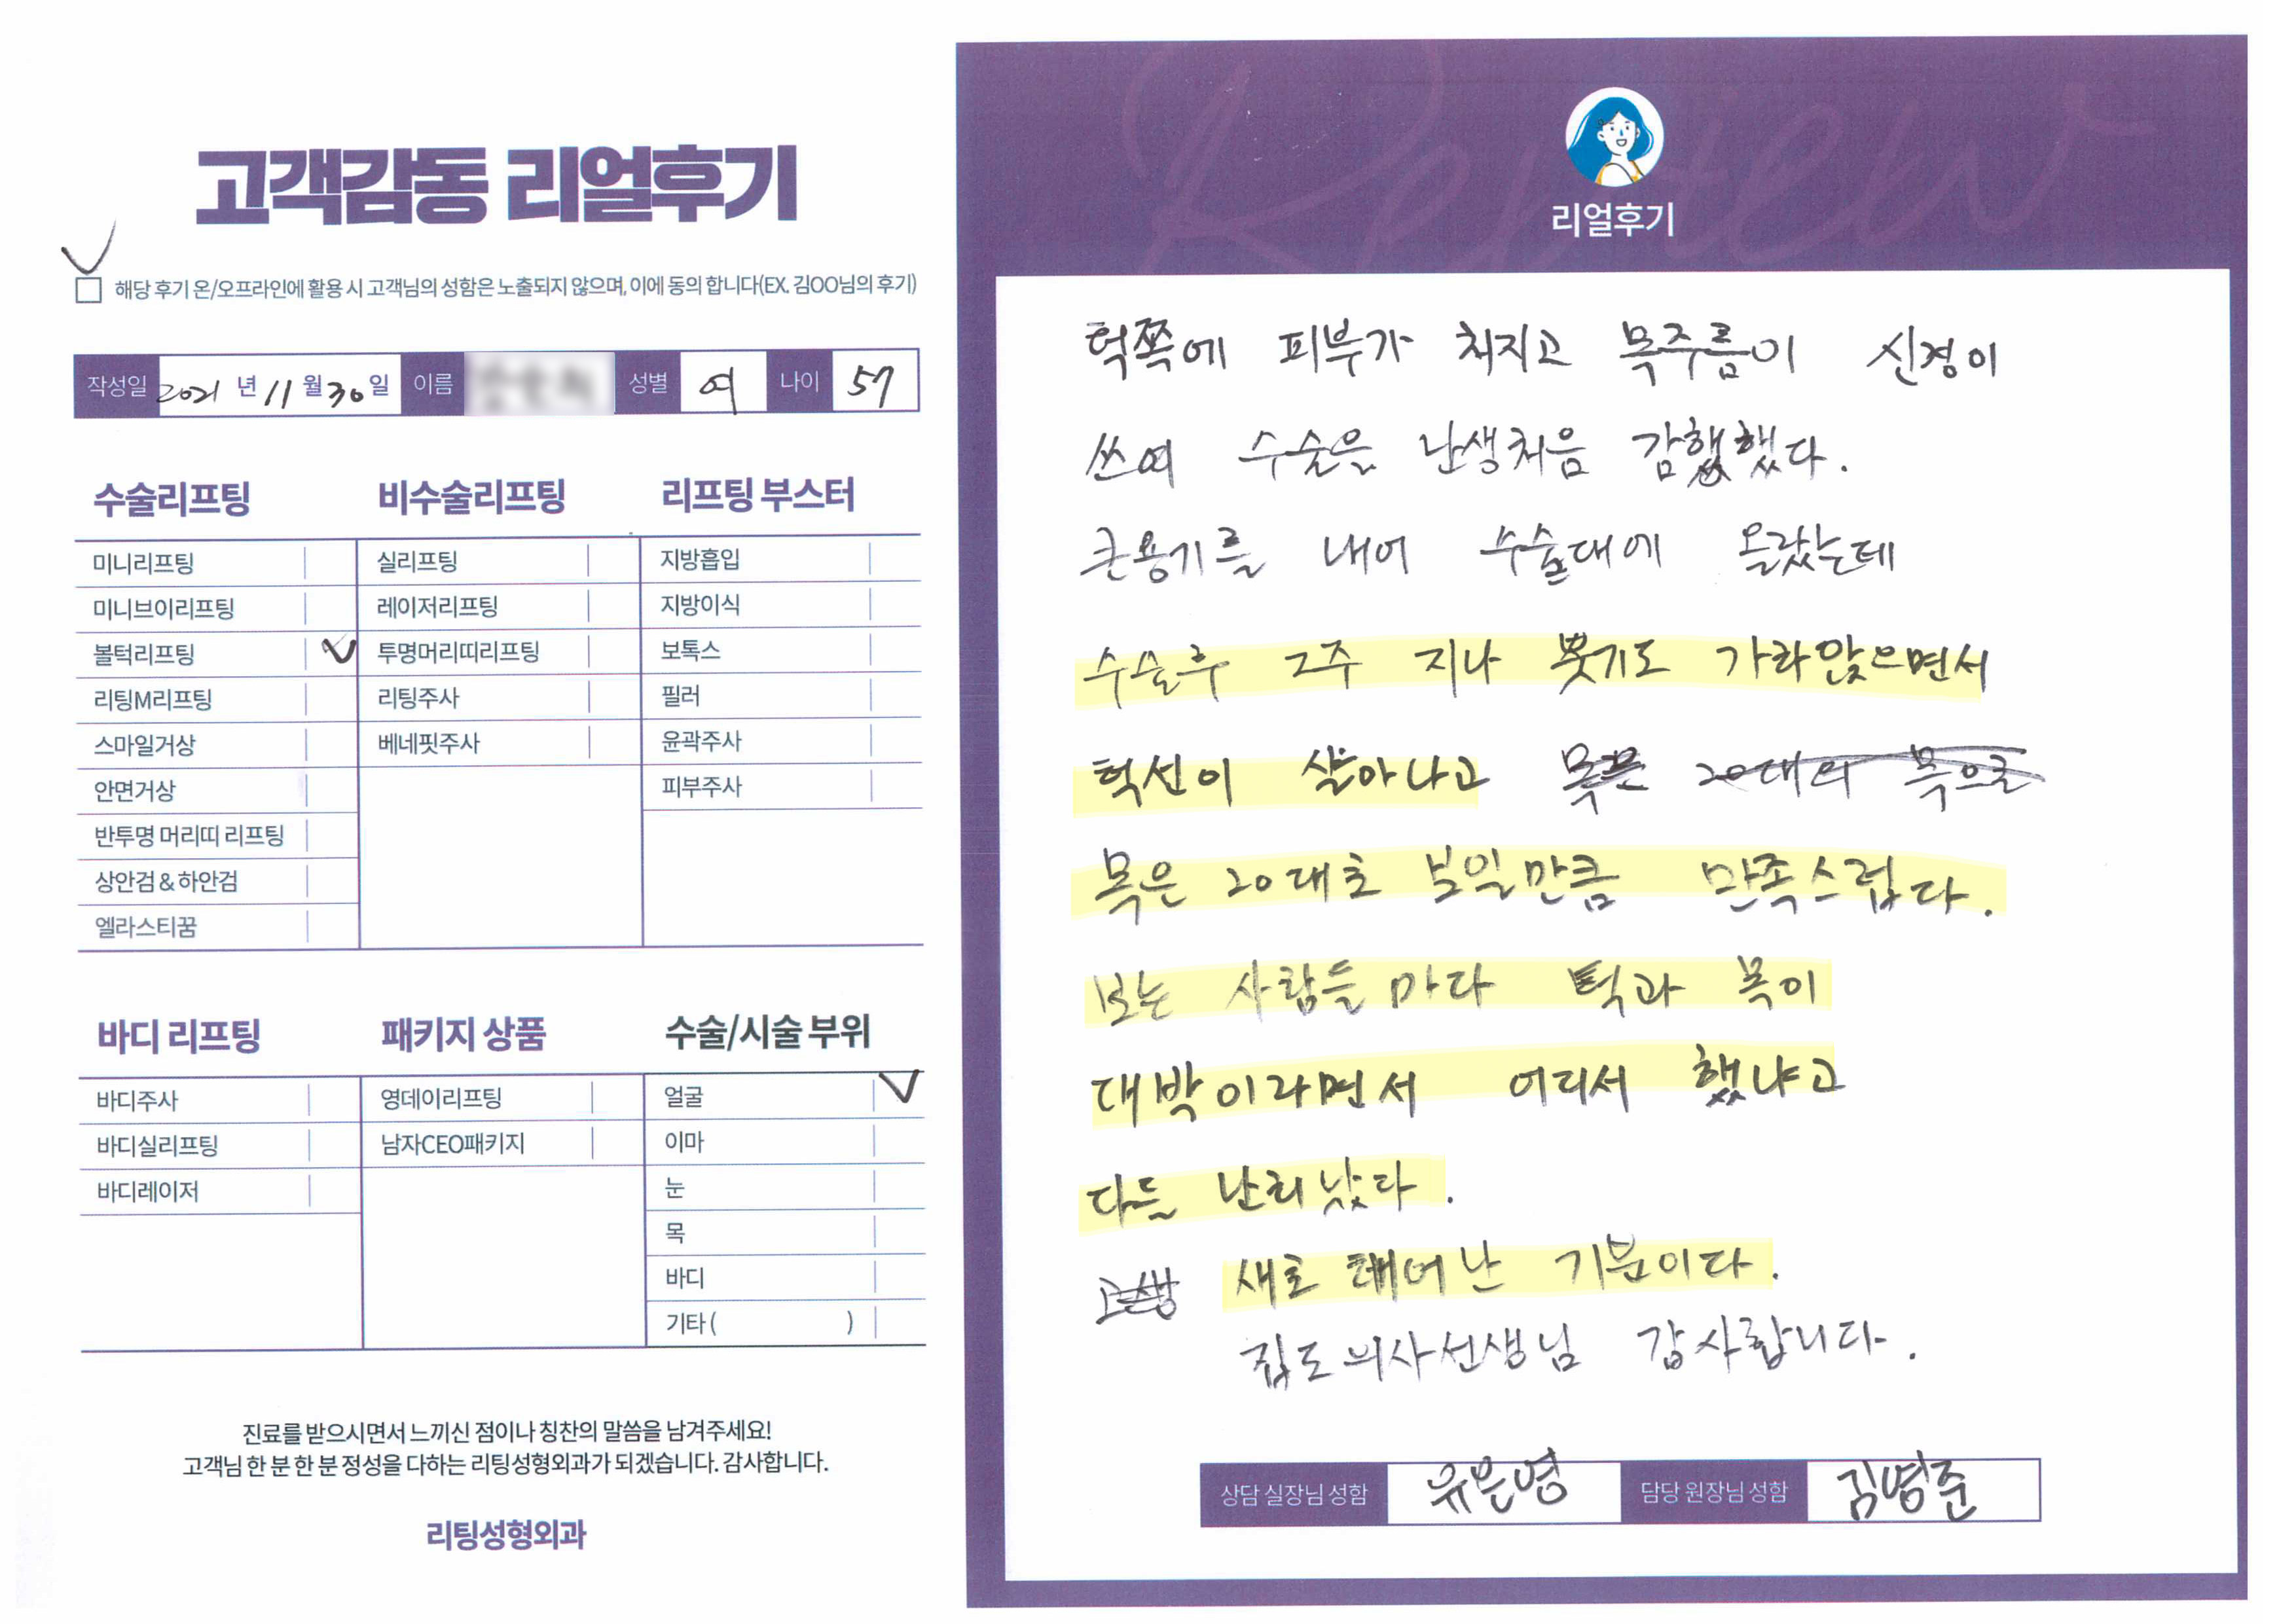 고객감동 리얼후기
해당 후기 온/오프라인에 활용 시 고객님의 성함은 노출되지 않으며, 이에 동의 합니다(EX. 김OO님의 후기)
작성일 2021 년 11 월 30 일 이름 성별 여 나이 57
수술리프팅
미니리프팅
미니브이리프팅
볼턱리프팅
리팅M리프팅
스마일거상
안면거상
반투명 머리띠 리프팅
상안검&하안검
엘라스티꿈
비수술리프팅
실리프팅
레이저리프팅
투명머리띠리프팅
리팅주사
베네핏주사
리프팅 부스터
지방흡입
지방이식
보톡스
필러
윤곽주사
피부주사
바디 리프팅
바디주사
바디실리프팅
바디레이저
패키지 상품
영데이리프팅
남자CEO패키지
수술/시술 부위
얼굴
이마
눈
목
바디
기타 ( )
진료를 받으시면서 느끼신 점이나 칭찬의 말씀을 남겨주세요!
고객님 한 분 한 분 정성을 다하는 리팅성형외과가 되겠습니다. 감사합니다.
리팅성형외과
Review
리얼후기
턱쪽에 피부가 처지고 목주름이 신경이
쓰여 수술을 난생처음 감행했다.
큰용기를 내어 수술대에 올랐는데
수술후 2주 지나 붓기도 가라앉으면서
턱선이 살아나고 목은 20대의 목으로
목은 20대로 보일만큼 만족스럽다.
보는 사람들마다 턱과 목이
대박이라면서 어디서 했냐고
다들 난리났다.
새로 태어난 기분이다.
집도의사선생님 감사합니다.
상담 실장님 성함 유은영 담당 원장님 성함 김병준